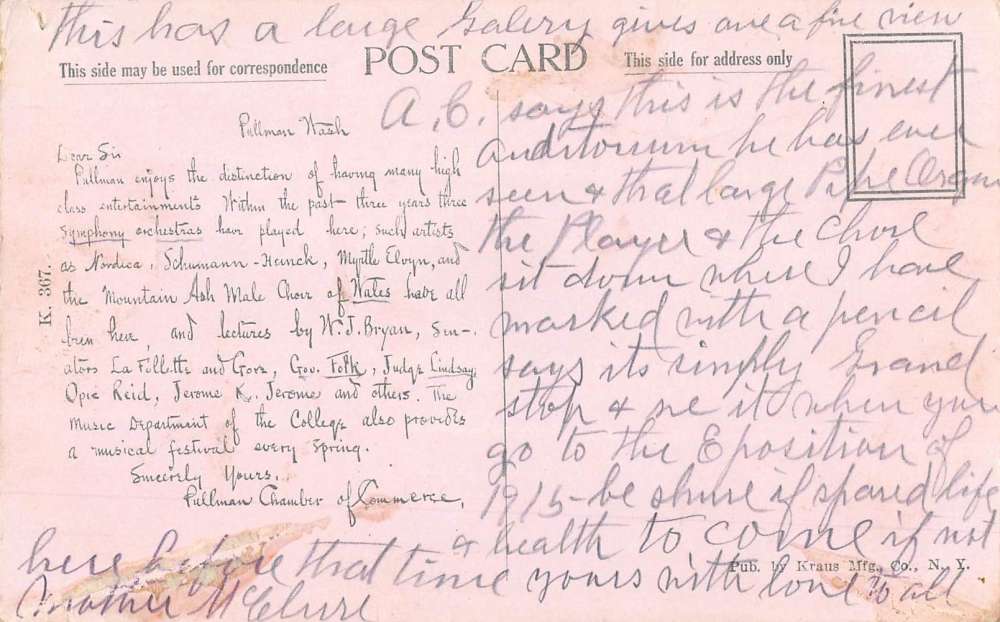 This has a large Galery gives one a fine view
POST CARD
This side may be used for correspondence
This side for address only
K. 367.
Pullman Wash
Dear Sir
Pullman enjoys the distinction of having many high
class entertainments Within the past three years three
Symphony orchestras have played here; such artists
as Nordica, Schumann-Heinck, Myrtle Elvyn, and
the Mountain Ash Male Choir of Wales have all
been here, and lectures by W. J. Bryan, Sen-
ators La Follette and Gore, Gov. Folk, Judge Lindsay,
Opie Reid, Jerome K. Jerome and others. The
Music Department of the College also provides
a musical festival every spring.
Sincerely Yours,
Pullman Chamber of Commerce,
A, C, says this is the finest
Auditorium he has ever
seen & that large Pipe Organ
the Player & the Choir
sit down where I have
marked with a pencil
says its simply Grand
stop & see it when you
go to the Eposition of
1915 - be shure if spared life
& health to come if not
here before that time yours with love to all
Mother McClure
Pub. by Kraus Mfg. Co., N. Y.